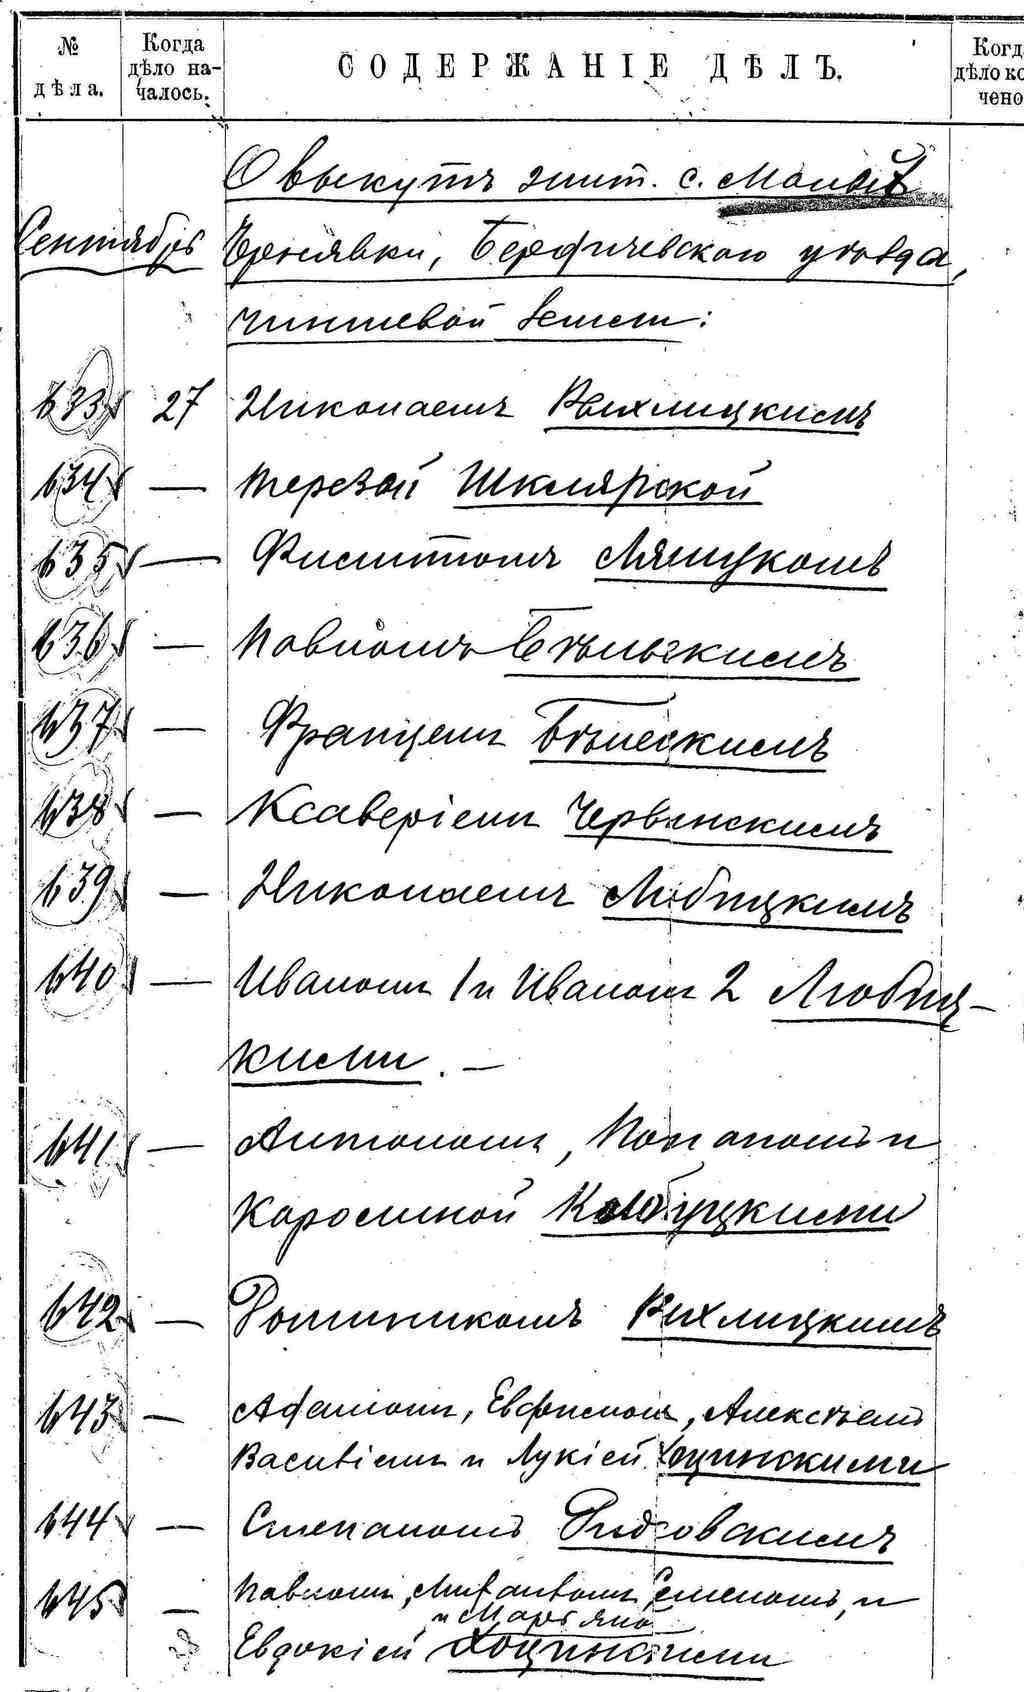 № дѣла.
Когда дѣло началось.
СОДЕРЖАНІЕ ДѢЛЪ.
Когд
дѣло ко
чено
О выкупѣ жит. с. Малой
Сентябрь
Чернявки, Бердичевскаго уѣзда,
чиншевой земли:
633 27 Николаемъ Рыхлицкимъ
634 — Терезой Шклярской
635 — Филиппомъ Ляшуком
636 — Павломъ Бѣльскимъ
637 — Францемъ Бѣлескимъ
638 — Ксаверіемъ Червинскимъ
639 — Николаемъ Любицкимъ
640 — Иваномъ 1 и Иваномъ 2 Любиц-
кими. —
641 — Антономъ, и
Каролиной
642 — Доминикомъ Рыхлицкимъ
643 — Адамомъ, Алексѣемъ
Василіемъ и Лукіей Хоцинскими
644 — Степаномъ
645 — Павломъ, Семеномъ, и
и Марьяно
Евдокіей Хоцинскими